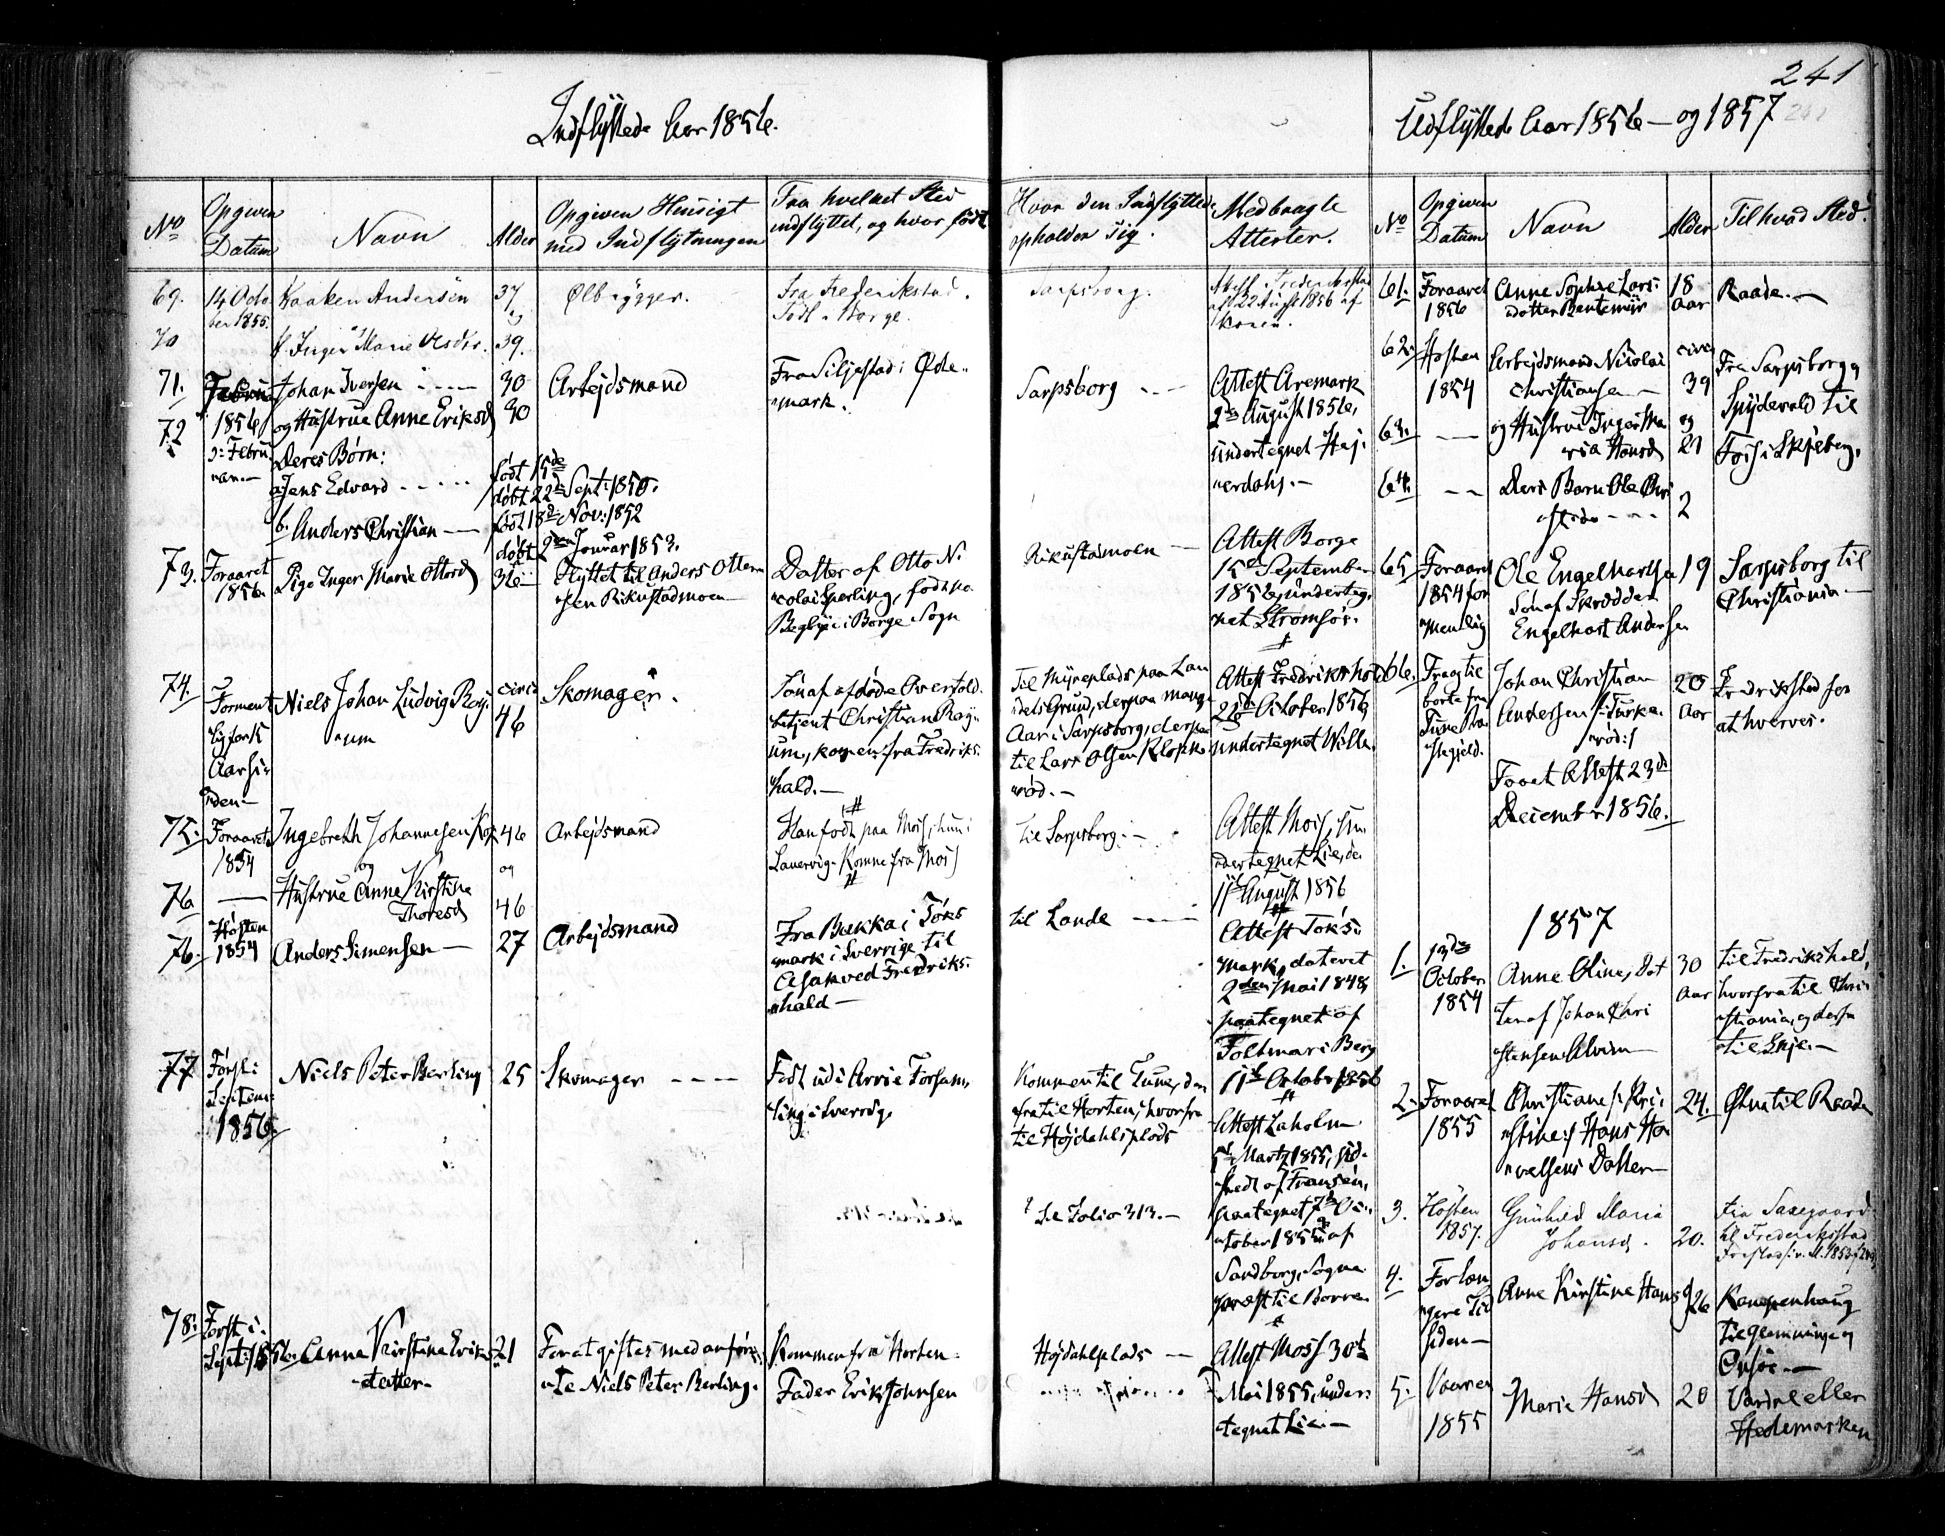 241
Indflyttede Aar 1856.
Udflyttede Aar 1856 — og 1857
No
Opgiven Datum
Navn
Alder
Opgiven Hensigt
med Indflytningen
Fra hvilket Sted
indflyttet, og hvor født
Hvor den Indflyttede
opholder sig.
Medbragte
Attester.
No
Opgiven Datum
Navn
Alder
Til hvad Sted.
69.
Haaken Andersen
37
Ølbrygger.
Fra Frederikstad.
Sarpsborg.
70
Inger Marie
39.
71.
Johan Iversen
30
Arbejdsmand
Fra Siljestad i Øde-
mark.
Sarpsborg
Attest Aremark
2den August 1856,
undertegnet Hej-
erdahl.
72
1856
og Hustrue Anne Eriksd
30
Febru-
Deres Børn:
a Jens Edvard
født 15de
døbt 22d Sept: 1850.
b. Anders Christian
født 18d Nov: 1852
døbt 2den Januar 1853.
73.
Foraaret
1856
Pige Inger Marie Ottersd
36
Flyttet til Anders Otter-
sen Rikustadmoen
Datter af Otto Ni-
colai Sperling, født paa
Begbye i Borge Sogn
Rikustadmoen
Attest Borge
15de September
1856, underteg-
net Strømsøe.
74.
Forment-
lig for 1
Aar si-
den.
Niels Johan Ludvig Røy-
um
circa
46
Skomager.
Søn af afdøde Overtold-
betjent Christian Røy-
um, kommen fra Fredriks-
hald.
Til Myreplads paa Lan-
dets Grund, derpaa mange
Aar i Sarpsborg, derpaa
til Lars Olsen Klokke-
rød.
Attest Fredrikshald
21de October 1856
undertegnet Wille.
75.
Foraaret
1854
Ingebreth Johannesen
46
Arbejdsmand
Han født paa Moss, hun i
Laurvig. Komne fra Moss
Til Sarpsborg.
Attest Moss, un-
dertegnet Lie, de
11te August 1856
og
og
76
Hustrue Anne Kirstine
Thoresd
46
76.
Høsten
1854
Anders Simensen
27
Arbejdsmand
Fra Bukka i Töks-
mark i Sverrige til
ved Fredriks-
hald
til Lande
Attest Töks-
mark, dateret
2den Mai 1848,
paategnet af
Foltmar i Berg
11te October 1856
77
Først i
Septem-
1856.
Niels Peter Berling
25
Skomager
Født udi Arvie Forsam-
ling i Sverrig
Kommen til Tune, der-
fra til Horten, hvorfra
til Højdahlsplads
Attest Laholm
5te Martz 1855,
paategnet 7de Oc-
tober 1855 af
Sandberg, Sogne-
præst til Borre.
Se Folio 313.
78.
Først i
Sept: 1856.
Anna Kirstine Eriks-
datter
21
For at giftes med anfør-
te Niels Peter Berling.
Kommen fra Horten.
Fader Erik Johnsen
Højdahlplads
Attest Moss 30te
Mai 1855, under-
tegnet Lie.
61.
Foraaret
1856
Anne Sophie Lars-
datter
18
Aar
Raade.
62.
Høsten
1854
Arbejdsmand Nicolai
Christiansen
circa
39
Fra Sarpsborg
Spydeberg til
Foss i Skjeberg.
63.
og Hustrue Inger Ma-
ria Hansd
og
64.
Deres Barn Ole Chri-
2
65.
Foraaret
1854 for-
mentlig
Ole Engelhartsen
Søn af Skrædder
Engelhart Andersen
19
Sarpsborg til
Christiania.
66.
Johan Christian
Andersen
Faaet Attest 23de
December 1856.
20
Aar
Fredrikstad for
at hverves.
1857
1.
13de
October
1854
Anne Oline, Dat-
ter af Johan Chri-
stensen Alvim
30
Aar
til Fredrikshald,
hvorfra til Chri-
stiania, og derfra
til Skje.
2.
Foraaret
1855
Christiane /: Kri-
stine :/ Hans Ha-
velsens Datter
24.
Ahn til Raade
3.
Høsten
1857.
Gunhild Maria
Johansd.
20.
Fra
til Frederiksstad
4.
For læn-
gere Tid
siden
Anne Kirstine Hansd
26
til Glemminge og
Onsøe.
5.
Vaaren
1855
Marie Hansd
20
Vardal eller
Hedemarken